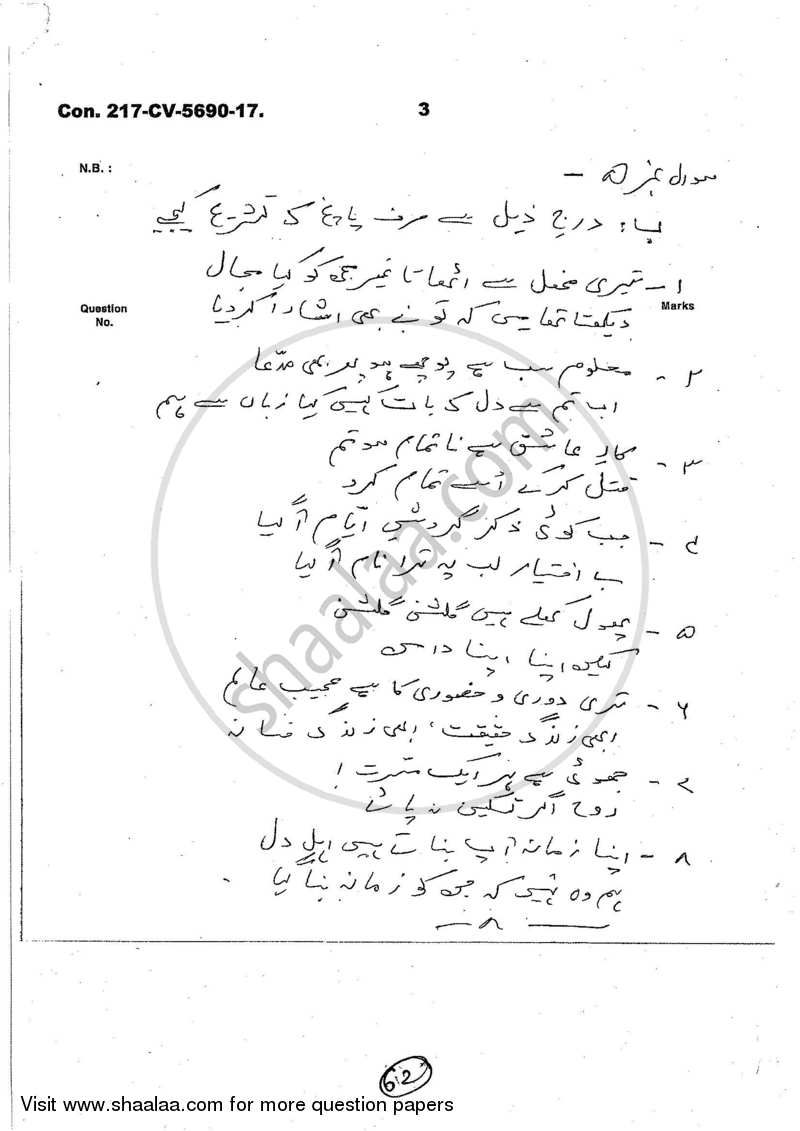 Con. 217-CV-5690-17.
3
N.B. :
سوال نمبر ۵ –
درج ذیل سے صرف پانچ کی تشریح کیجیے
۱ – تیری محفل سے اٹھاتا غیر مجھ کو کیا مجال
Question No.
Marks
دیکھتا تھا میں کہ تو نے بھی اشارا کر دیا
۲ - معلوم سب ہے پوچھتے ہو پھر بھی مدّعا
اب تم سے دل کی بات کہیں کیا زباں سے ہم
۳ - کارِ عاشق ہے ناتمام سو تم
قتل کر کے اُسے تمام کرو
۴ - جب کوئی ذکرِ گردشِ ایّام آ گیا
بے اختیار لب پہ ترا نام آ گیا
۵ - پھول کھلے ہیں گلشن گلشن
لیکن اپنا اپنا دامن
۶ - تری دوری و حضوری کا ہے عجیب عالم
ابھی زندگی حقیقت، ابھی زندگی فسانہ
۷ - جھوٹی ہے ہر ایک مسرت !
روح اگر تسکین نہ پائے
۸ - اپنا زمانہ آپ بناتے ہیں اہلِ دل
ہم وہ نہیں کہ جن کو زمانہ بنا گیا
— ۸ —
shaalaa.com
612
Visit www.shaalaa.com for more question papers